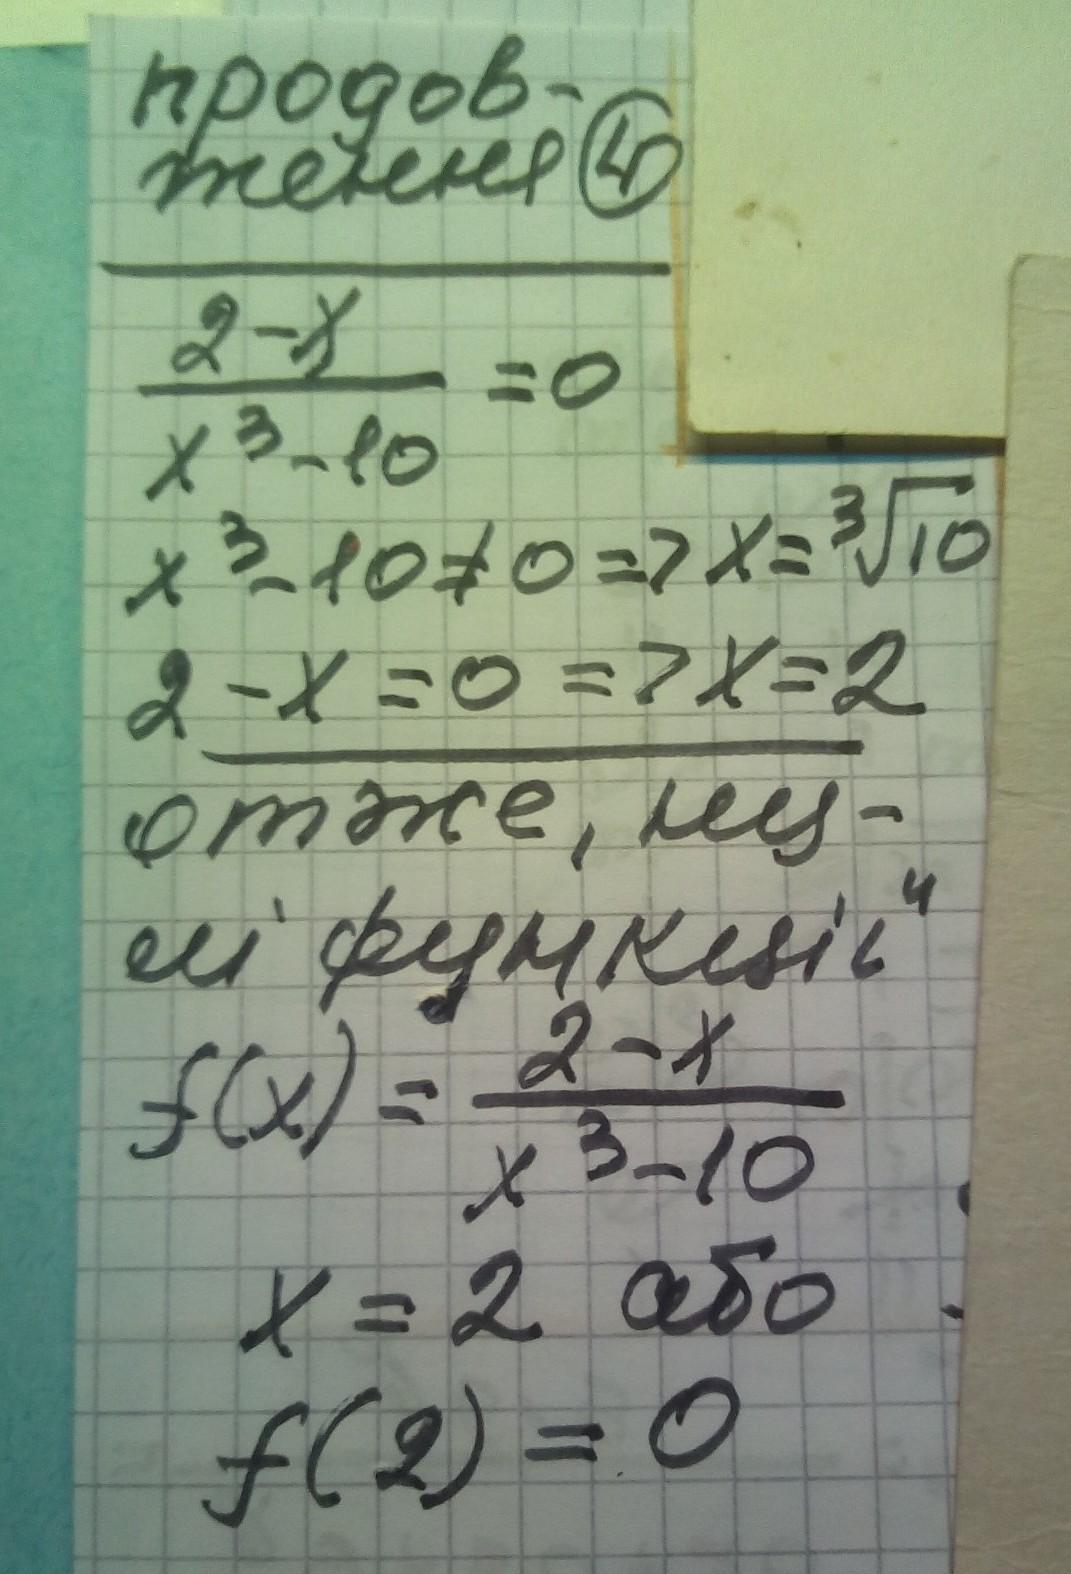 продов-
ження ④
2-x
/
x³-10
=0
x³-10≠0=>x=³√10
2-x=0=>x=2
отже, ну-
лі функції
f(x)=(2-x)/(x³-10)
x=2 або
f(2)=0